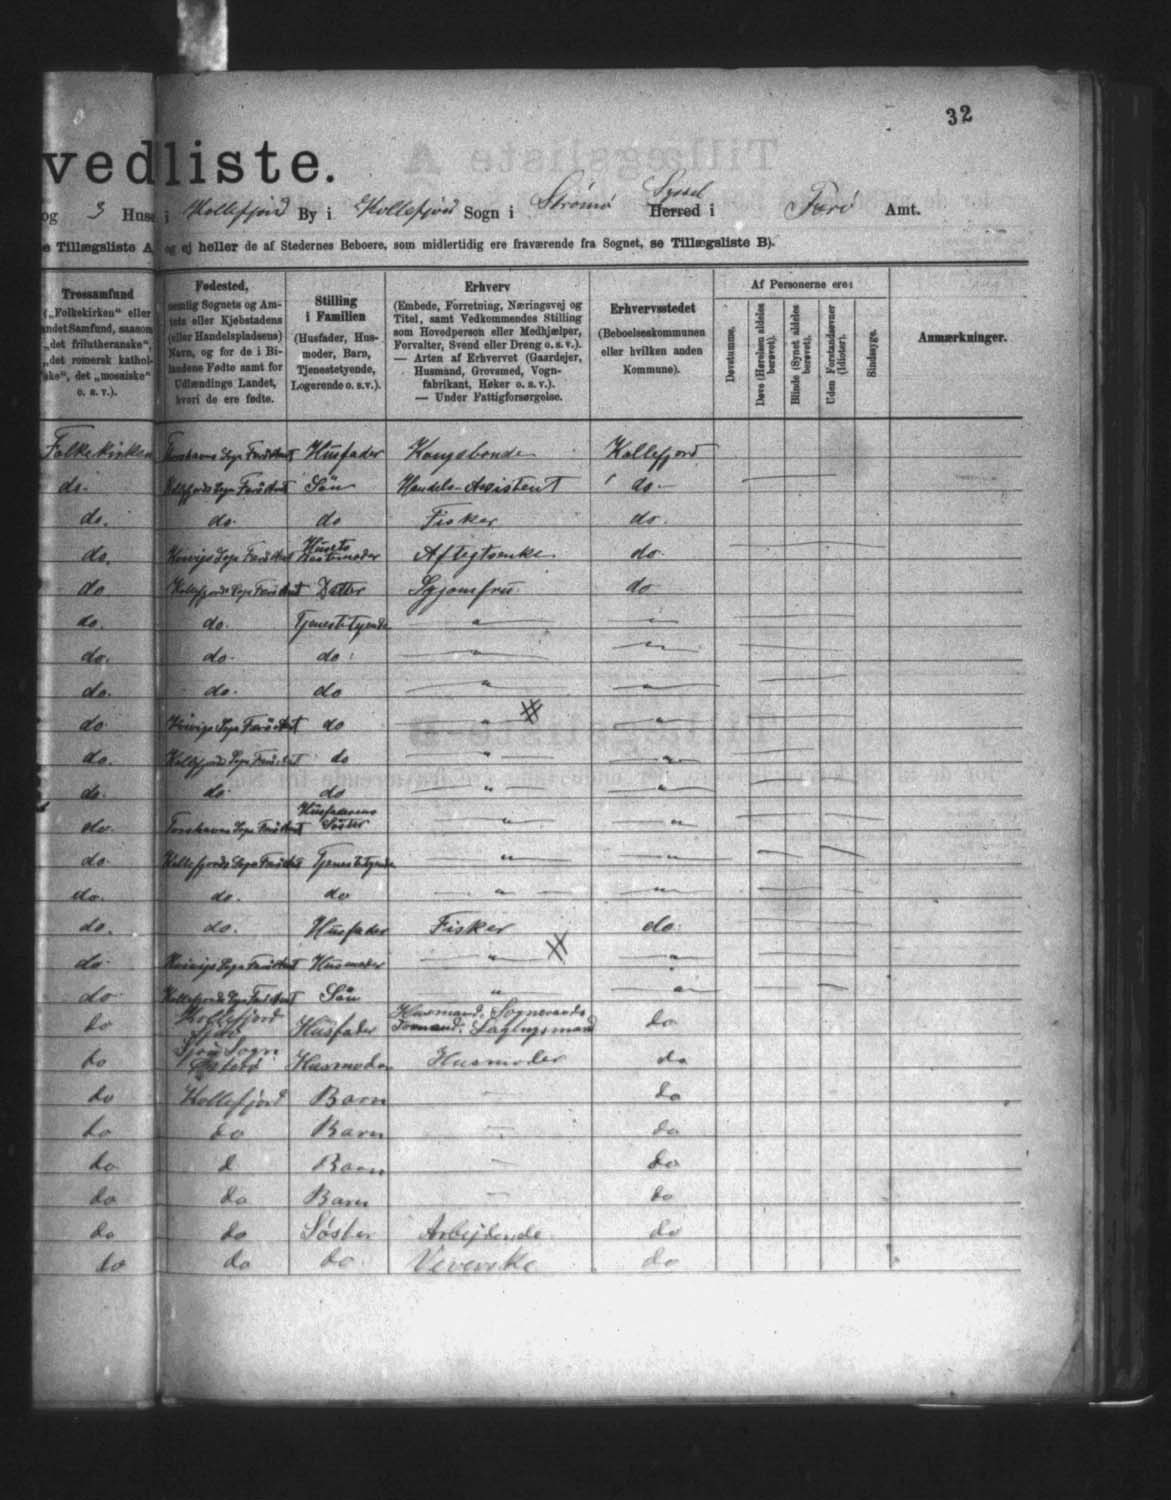 32
vedliste.
og 3 Huse i Kollefjord By i Kollefjord Sogn i Strømø Syssel Herred i Færö Amt.
e Tillægsliste A og ej heller de af Stedernes Beboere, som midlertidig ere fraværende fra Sognet, se Tillægsliste B).
Trossamfund
(„Folkekirken“ eller
andet Samfund, saasom
„det frilutheranske“,
„det romersk kathol-
ske“, det „mosaiske“
o. s. v.).
Fødested,
nemlig Sognets og Am-
tets eller Kjøbstadens
(eller Handelspladsens)
Navn, og for de i Bi-
landene Fødte samt for
Udlændinge Landet,
hvori de ere fødte.
Stilling
i Familien
(Husfader, Hus-
moder, Barn,
Tjenestetyende,
Logerende o. s. v.).
Erhverv
(Embede, Forretning, Næringsvej og
Titel, samt Vedkommendes Stilling
som Hovedperson eller Medhjælper,
Forvalter, Svend eller Dreng o. s. v.).
— Arten af Erhvervet (Gaardejer,
Husmand, Grovsmed, Vogn-
fabrikant, Høker o. s. v.).
— Under Fattigforsørgelse.
Erhvervsstedet
(Beboelseskommunen
eller hvilken anden
Kommune).
Af Personerne ere:
Døvstumme.
Døve (Hørelsen aldeles
berøvet).
Blinde (Synet aldeles
berøvet).
Uden Forstandsevner
(Idioter).
Sindssyge.
Anmærkninger.
Folkekirken Thorshavns Sogn Færö Amt Husfader Kongsbonde Kollefjord
do. Kollefjords Sogn Færö Amt Sön Handels-Assistent do.
do. do. do Fisker do.
do. Kvivigs Sogn Færö Amt Husets Husmoder Aftegtsenke do.
do Kollefjords Sogn Færö Amt Datter Syjomfru do
do. do. Tjenestetyende " "
do. do. do. " "
do. do. do " "
do Kvivigs Sogn Færö Amt do " "
do. Kollefjords Sogn Færö Amt do " "
do. do do " "
do. Torshavns Sogn Færö Amt Husfaderens Söster " "
do. Kollefjords Sogn Færö Amt Tjenestetyende " "
do. do. do " "
do. do. Husfader Fisker do.
do. Kvivigs Sogn Færö Amt Husmoder " "
do Kollefjords Sogn Færö Amt Sön " "
do Kollefjord Husfader Husmand, Sogneraads Formand, Lagtingsmand do
do Sjou Sogn Österö Husmoder Husmoder do
do Kollefjord Barn — do
do do Barn — do
do d Barn — do
do do Barn — do
do do Søster Arbejdende do
do do do. Væverske do